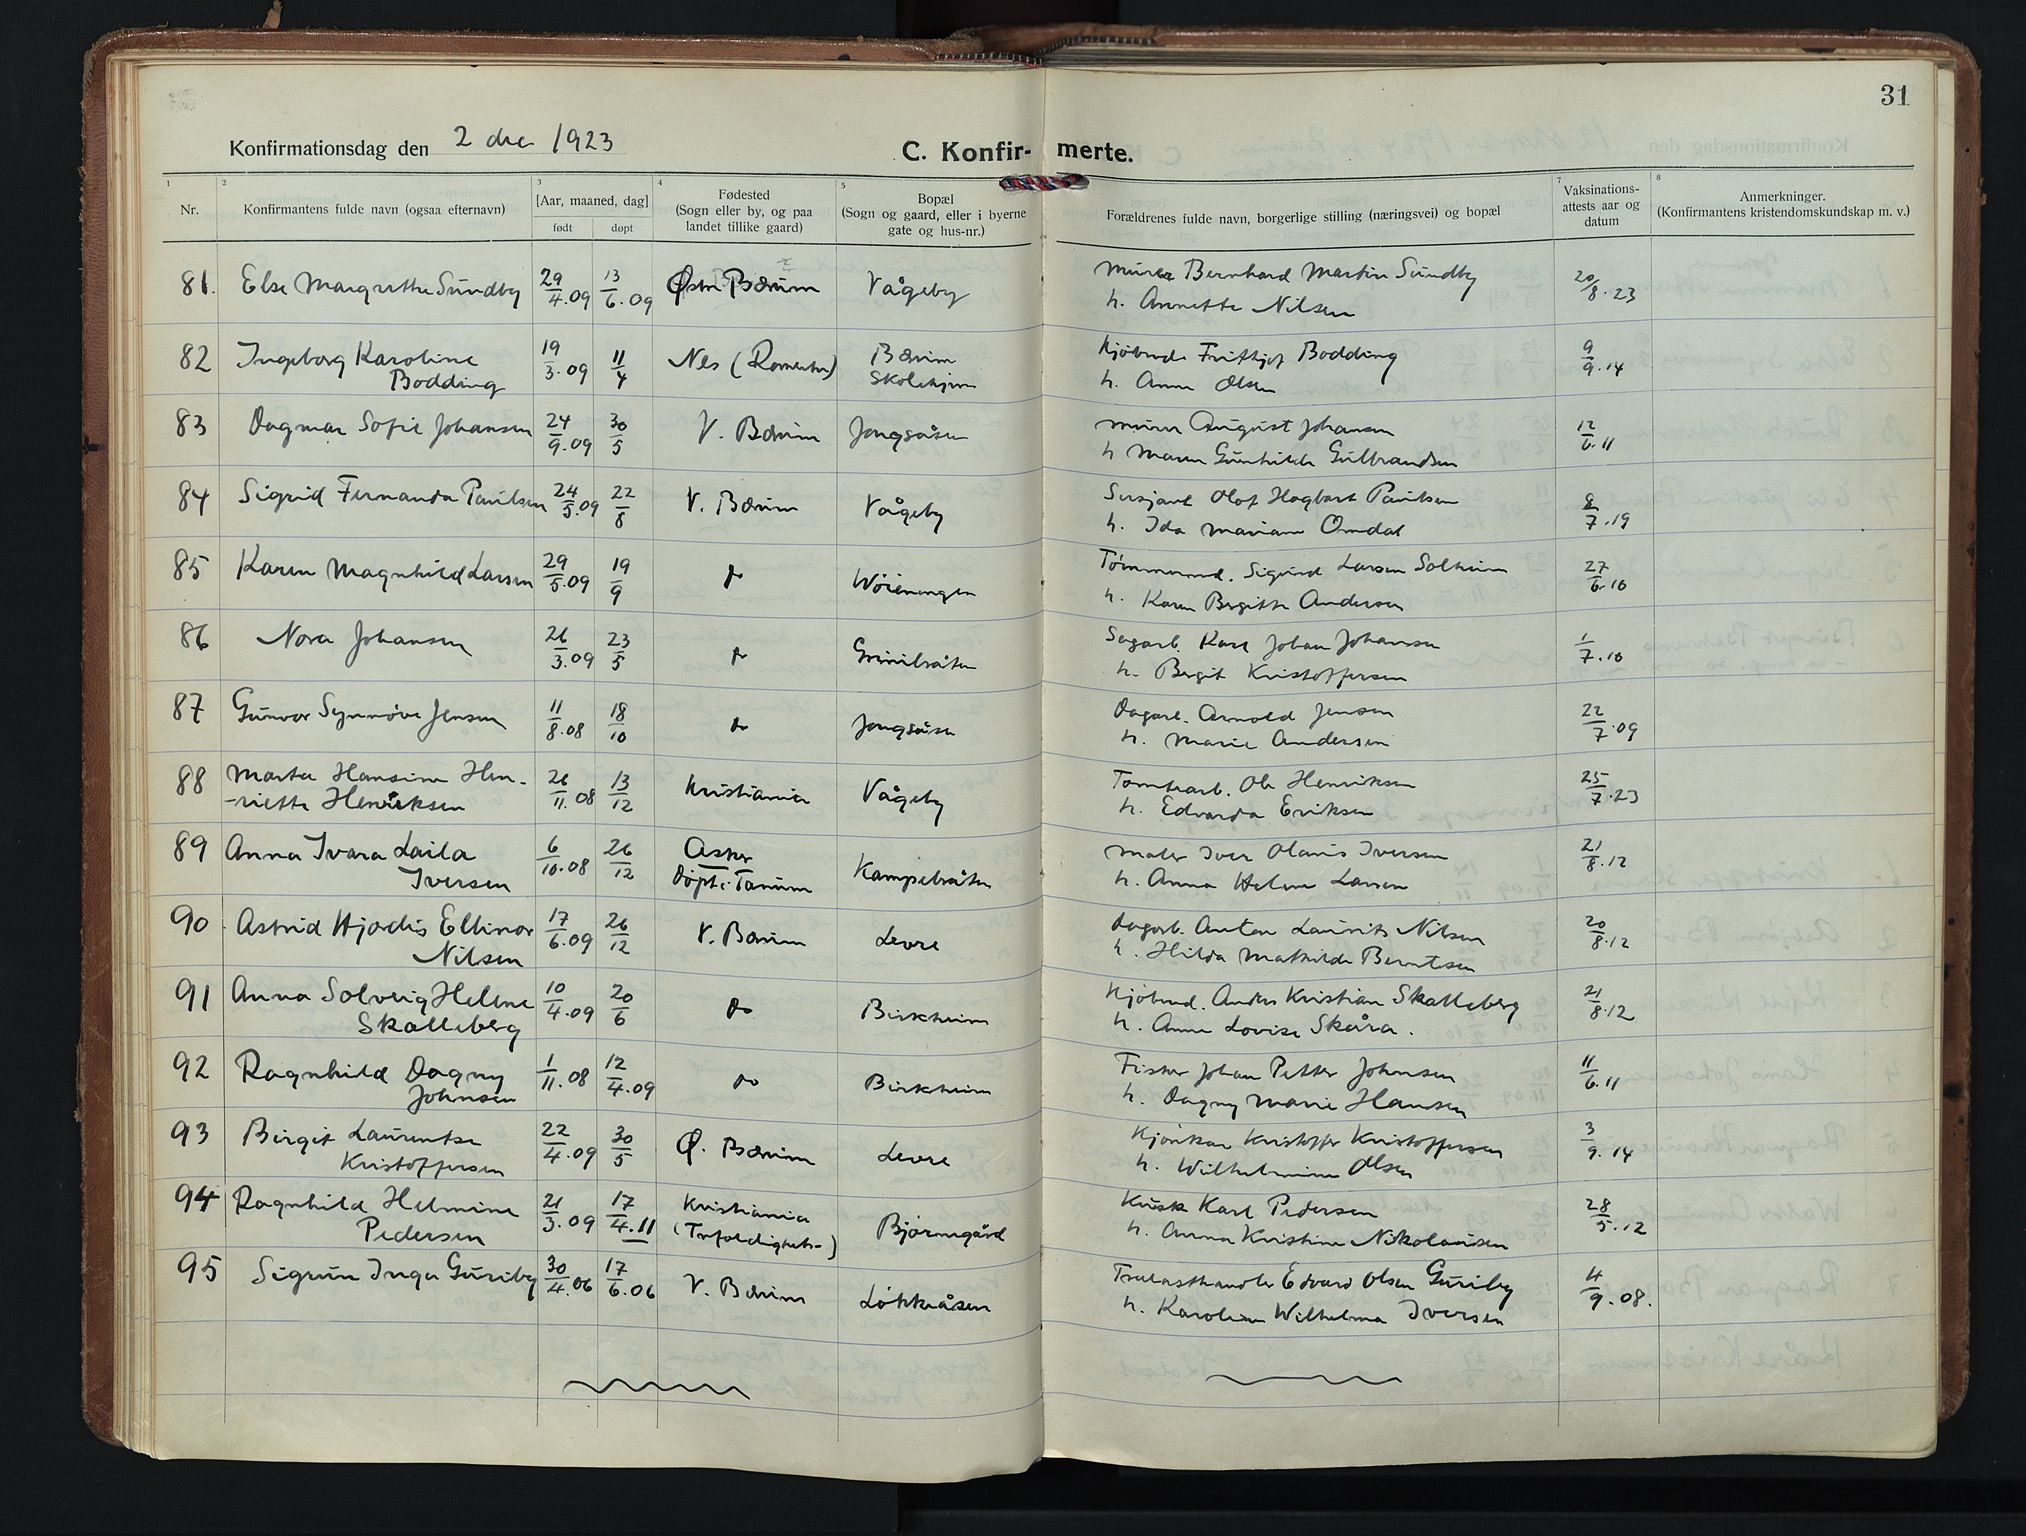 31
Konfirmationsdag den 2 dec 1923
C. Konfirmerte.
1 2 3 4 5 7 8
Nr.
Konfirmantens fulde navn (ogsaa efternavn)
[Aar, maaned, dag]
født døpt
Fødested
(Sogn eller by, og paa
landet tillike gaard)
Bopæl
(Sogn og gaard, eller i byerne
gate og hus-nr.)
Forældrenes fulde navn, borgerlige stilling (næringsvei) og bopæl
Vaksinations-
attests aar og
datum
Anmerkninger.
(Konfirmantens kristendomskundskap m. v.)
81. Else Margrethe Sundby 29/4.09 13/6.09 Østre Bærum Vågeby Murer Bernhard Martin Sundby 20/8.23
h. Annette Nilsen
82 Ingeborg Karoline 19/3.09 11/4 Nes (Romerike) Bærum Kjøbmd. Frithjof Bodding 9/9.14
Bodding Skolehjem h. Anna Olsen
83 Dagmar Sofie Johansen 24/9.09 30/5 V. Bærum Jongsåsen murer August Johansen 12/6.11
h Maren Gunhilde Gulbrandsen
84 Sigrid Fernanda Paulsen 24/5.09 22/8 V. Bærum Vågeby Sersjant Olof Hagbart Paulsen /7.19
h. Ida Mariane Omdal
85 Karen Magnhild Larsen 29/5.09 19/9 do Wøienengen Tømmermd. Sigurd Larsen Solheim 27/6.10
h. Karen Bergitte Andersen
86 Nora Johansen 26/3.09 23/5 do Grinibråten Sagarb. Karl Johan Johansen 1/7.10
h. Bergit Kristoffersen
87 Gunvor Synnøve Jensen 11/8.08 18/10 do Jongsåsen Dagarb. Arnold Jensen 22/7.09
h. Marie Andersen
88 Marta Hansine Hen- 26/11.08 13/12 Kristiania Vågeby Tomtearb. Ole Henriksen 25/7.23
-riette Henriksen h. Edvarda Eriksen
89 Anna Ivara Laila 6/10.08 26/12 Asker Kampebråten Maler Iver Olavis Iversen 21/8.12
Iversen døpt i Tanum h. Anna Helene Larsen
90 Astrid Hjørdis Ellinor 17/6.09 26/12 V. Bærum Levre Dagarb. Anton Laurits Nilsen 20/8.12
Nilsen h. Hilda Mathilde Berntsen
91 Anna Solveig Helene 10/4.09 20/6 do Birkheim Kjøbmd. Anders Kristian Skalleberg 21/8.12
Skalleberg h. Anne Lovise Skåra.
92 Ragnhild Dagny 1/11.08 12/4.09 do Birkheim Fisker Johan Petter Johnsen 11/6.11
Johnsen h. Dagny Marie Hansen
93 Birgit Laurentse 22/4.09 30/5 Ø. Bærum Levre Kristoffer Kristoffersen 3/9.14
Kristoffersen h. Wilhelmine Olsen
94 Ragnhild Helmine 21/3.09 17/4.11 Kristiania Bjørnegård Kusk Karl Pedersen 28/5.12
Pedersen (Trefoldighets-) h. Anna Kristine Nikolaisen
95 Sigrun Inga Guriby 30/4.06 17/6.06 V. Bærum Løkkeåsen Trælasthandler Edvard Olsen Guriby 4/9.08.
h. Karoline Wilhelma Iversen